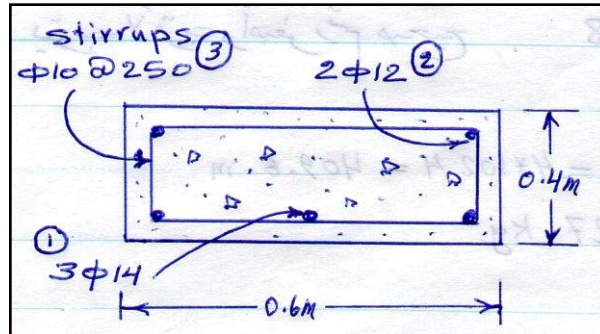 stirrups ③
ϕ10@250
2ϕ12 ②
0.4m
① 3ϕ14
0.6m